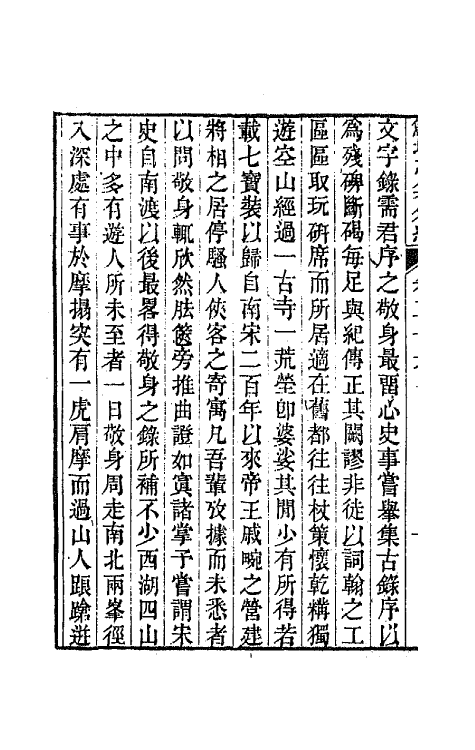 文字錄需君序之敬身最畱心史事嘗舉集古錄序以
爲殘碑斷碣每足與紀傳正其闕謬非徒以詞翰之工
區區取玩硏席而所居適在舊都往往杖策懷乾糒獨
遊空山經過一古寺一荒塋卽婆娑其閒少有所得若
載七寶裝以歸自南宋二百年以來帝王戚畹之營建
將相之居停騷人俠客之寄寓凡吾輩攷據而未悉者
以問敬身輒欣然胠篋旁推曲證如寘諸掌予嘗謂宋
史自南渡以後最畧得敬身之錄所補不少西湖四山
之中多有遊人所未至者一日敬身周走南北兩峯徑
入深處有事於摩搨突有一虎肩摩而過山人踉蹌逬